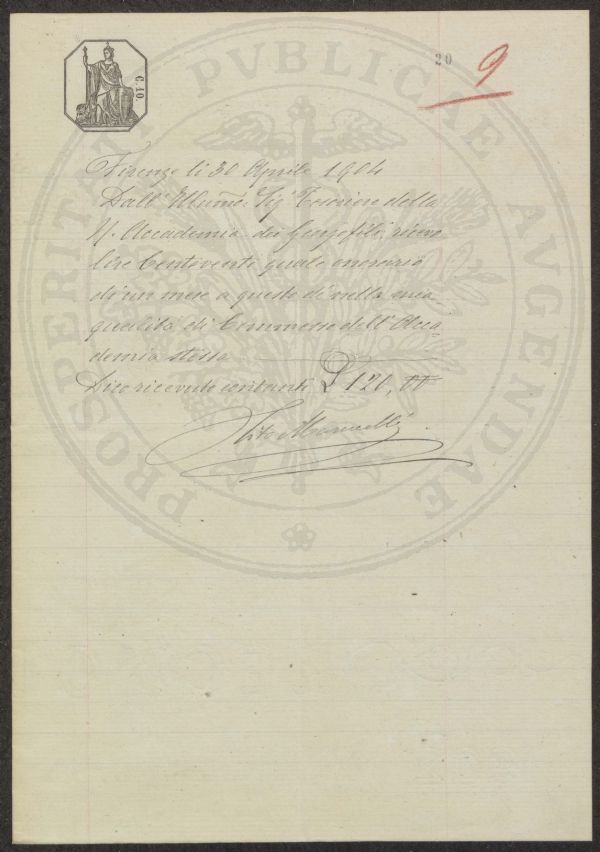 PROSPERITATI PVBLICAE AVGENDAE
C. 10
20
9
Firenze li 30 Aprile 1904
Dall' Illumo. Sig Tesoriere della
R. Accademia dei Georgofili, ricevo
lire Centoventi quale onorario
di un mese a questo dì nella mia
qualità di Commesso dell' Acca-
demia stessa
Dico ricevute contante £ 120,
Vito